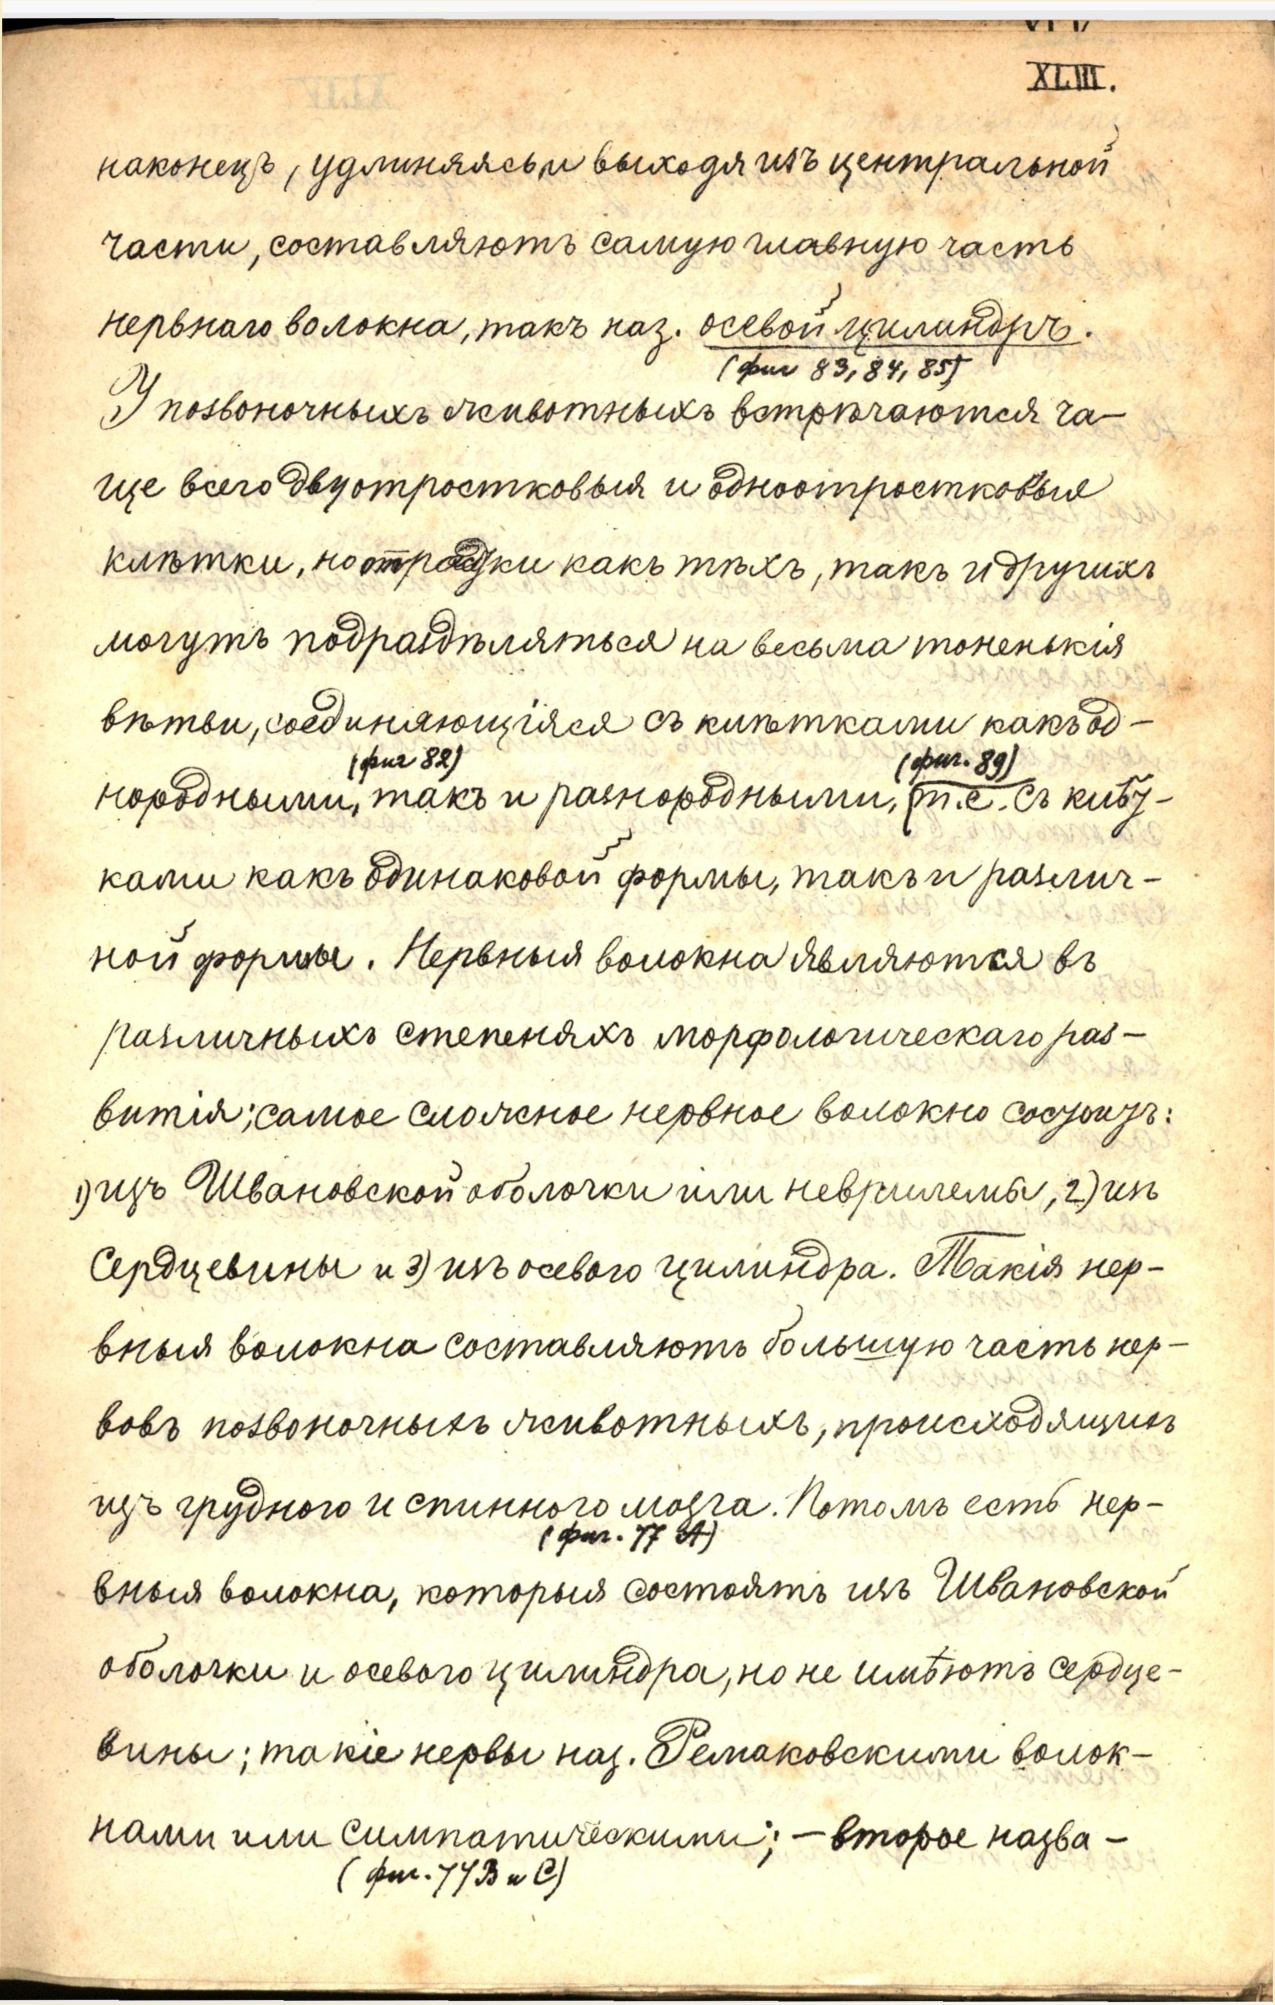 XLIII.
наконецъ, удлиняясь и выходя изъ центральной
части, составляютъ самую главную часть
нервнаго волокна, такъ наз. осевой цилиндръ.
(фиг 83, 84, 85)
У позвоночныхъ животныхъ встрѣчаются ча-
ще всего двуотростковыя и одноотростковыя
клѣтки, но отростки какъ тѣхъ, такъ и другихъ
могутъ подраздѣляться на весьма тоненькія
вѣтви, соединяющіяся съ клѣтками какъ од-
(фиг 82) (фиг. 89)
нородными, такъ и разнородными, т.е. съ клѣт-
ками какъ одинаковой формы, такъ и различ-
ной формы. Нервныя волокна являются въ
различныхъ степеняхъ морфологическаго раз-
витія; самое сложное нервное волокно состоитъ:
1) изъ Швановской оболочки или неврилемы, 2) изъ
сердцевины и 3) изъ осевого цилиндра. Такія нер-
вныя волокна составляютъ большую часть нер-
вовъ позвоночныхъ животныхъ, происходящихъ
изъ грудного и спинного мозга. Потомъ есть нер-
(фиг. 77 А)
вныя волокна, которыя состоятъ изъ Швановской
оболочки и осевого цилиндра, но не имѣютъ сердце-
вины; такіе нервы наз. Ремаковскими волок-
нами или симпатическими; — второе назва-
(фиг. 77 В и С)